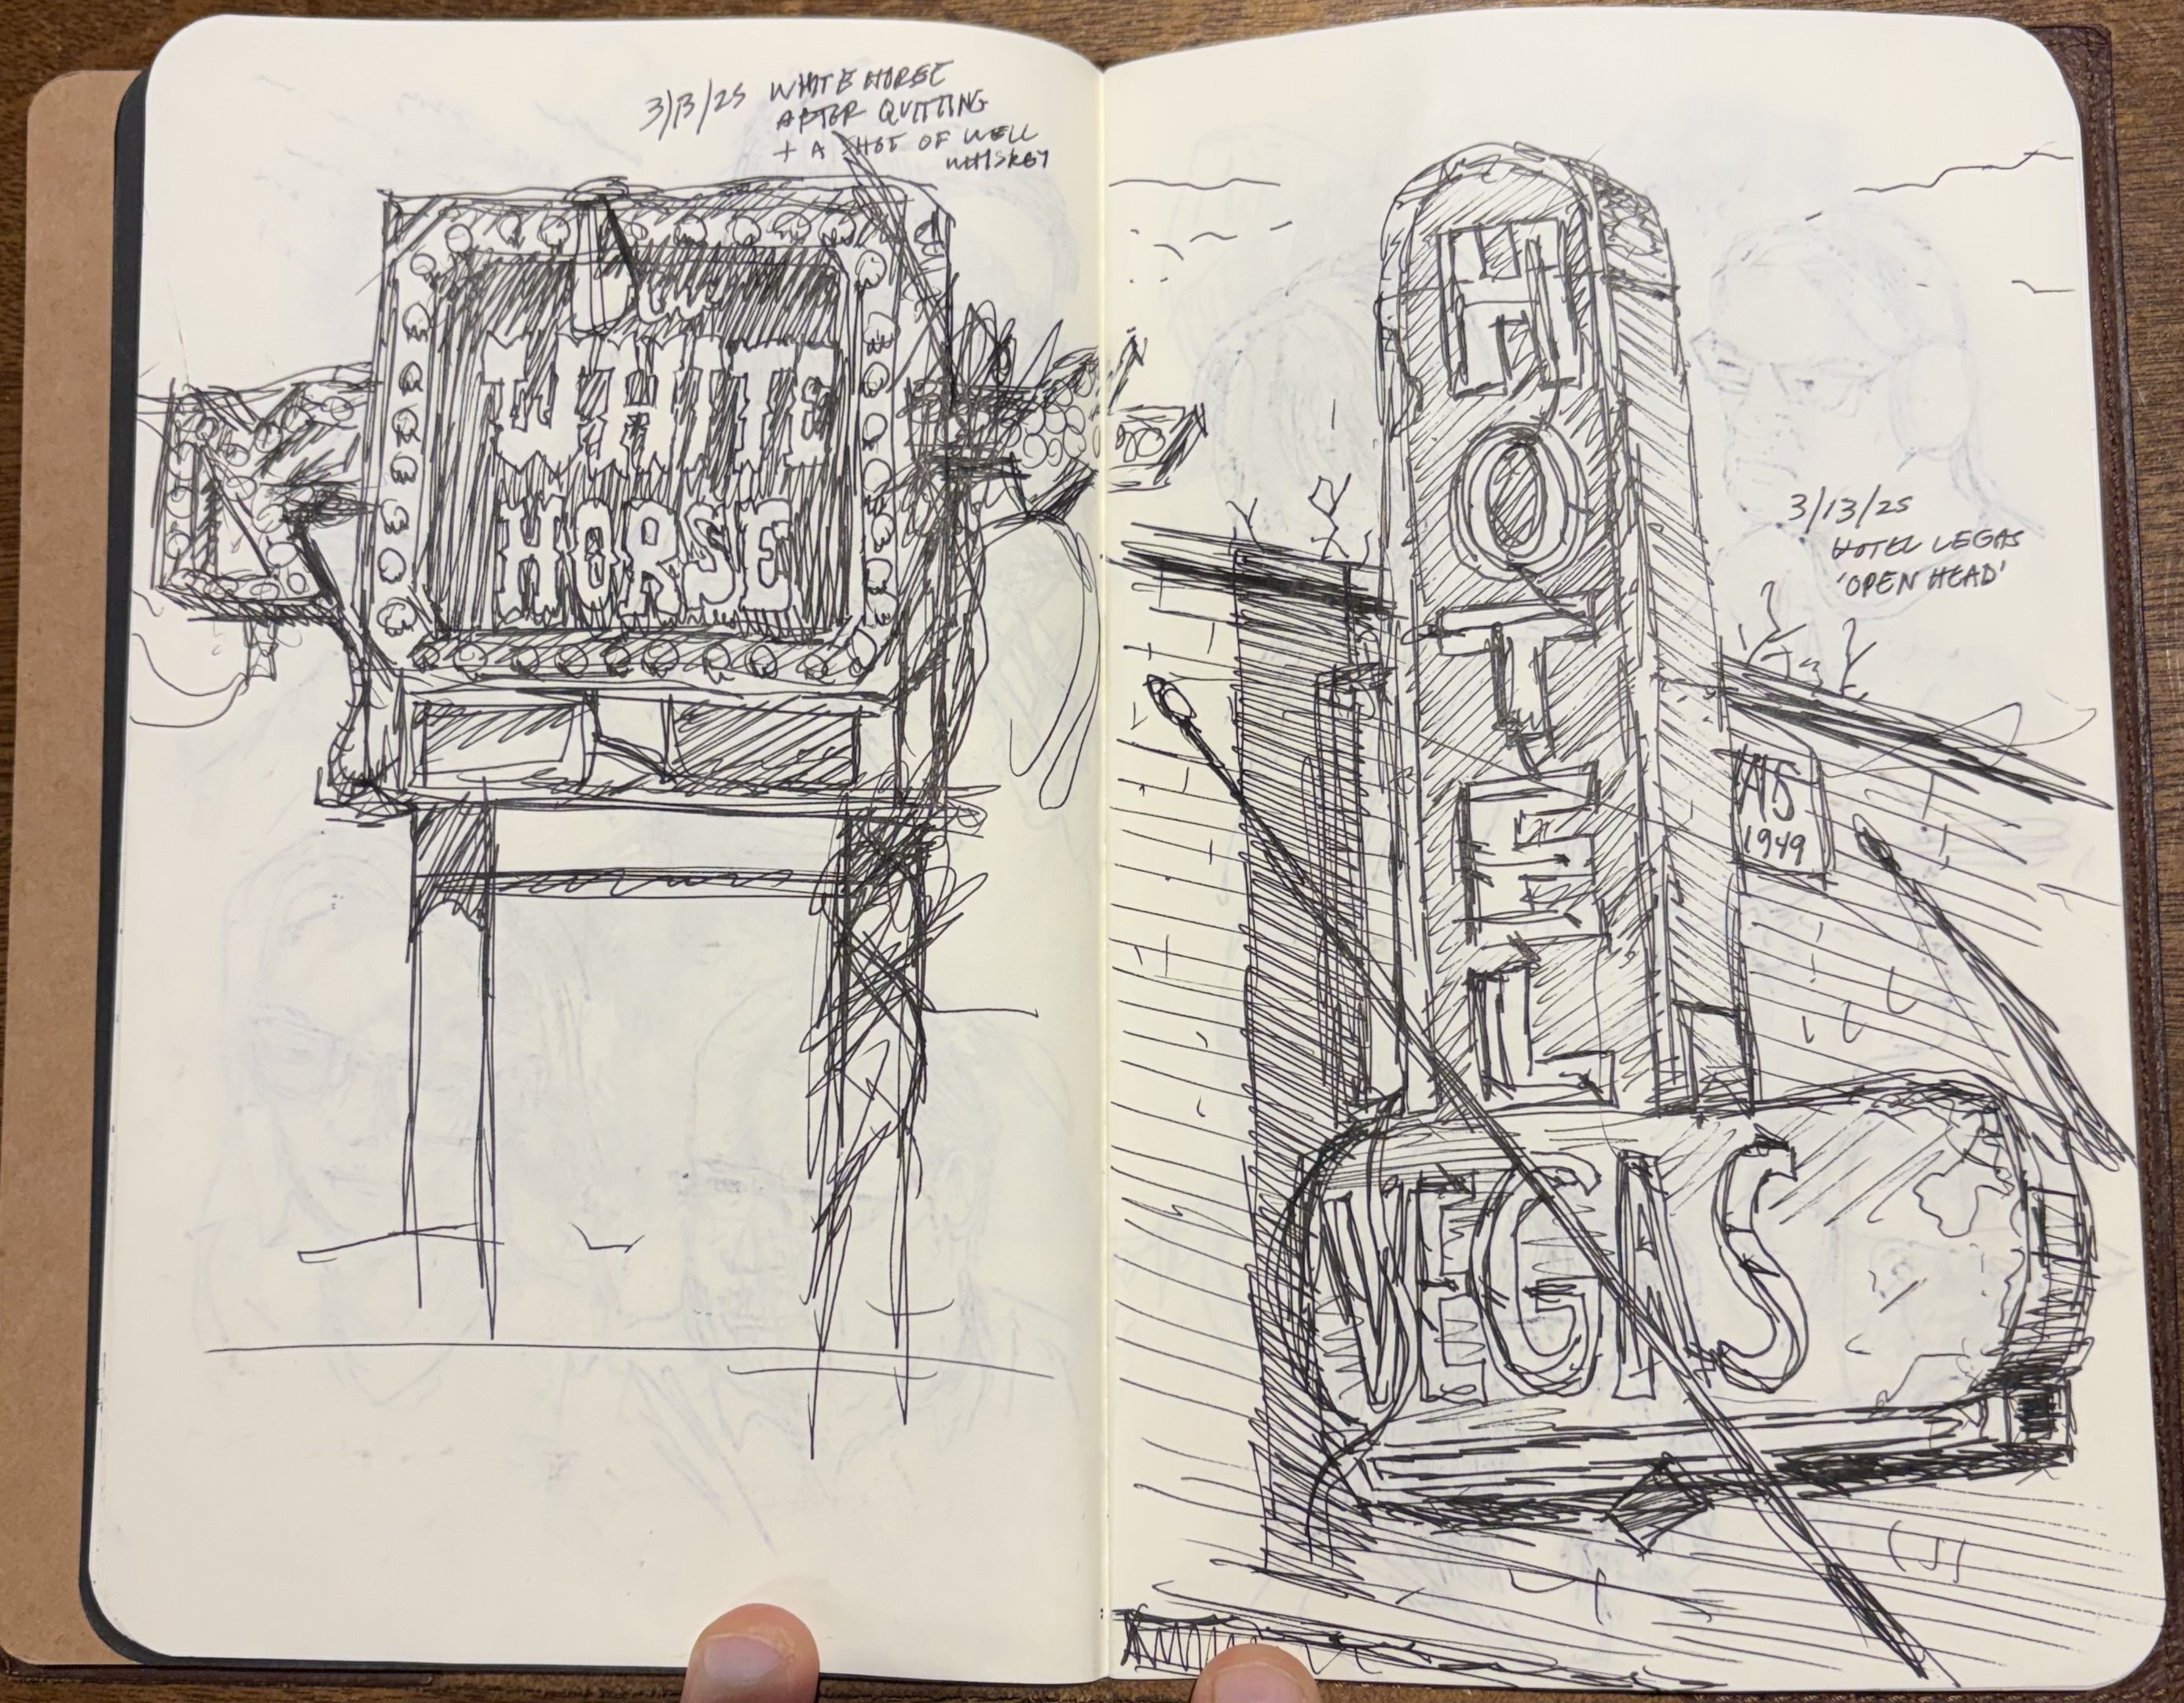 3/13/25 WHITE HORSE
AFTER QUITTING
+ A SHOT OF WELL
WHISKEY
The
WHITE
HORSE
HOTEL
VEGAS
3/13/25
HOTEL VEGAS
'OPEN HEAD'
1949